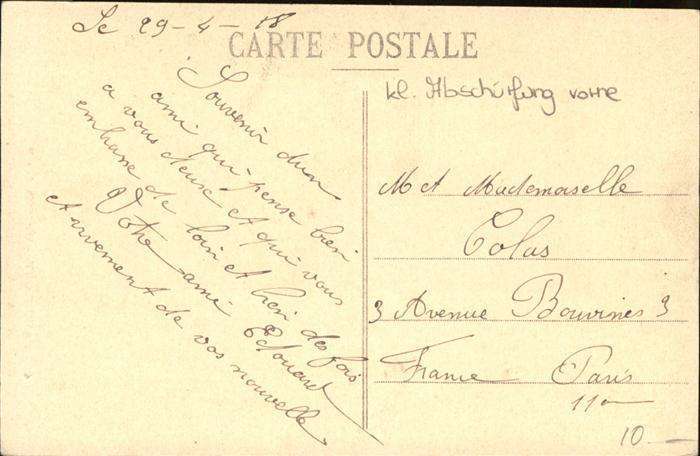 Le 29-4-18
CARTE POSTALE
kl. Abschürfung vorne
Souvenir d'un
ami qui pense bien
a vous deux et qui vous
embrasse de loin et bien des fois
Votre ami Edouard
et vivement de vos nouvelle
M et Mademoiselle
Colas
3 Avenue Bouvines 3
France Paris
11e
10 —